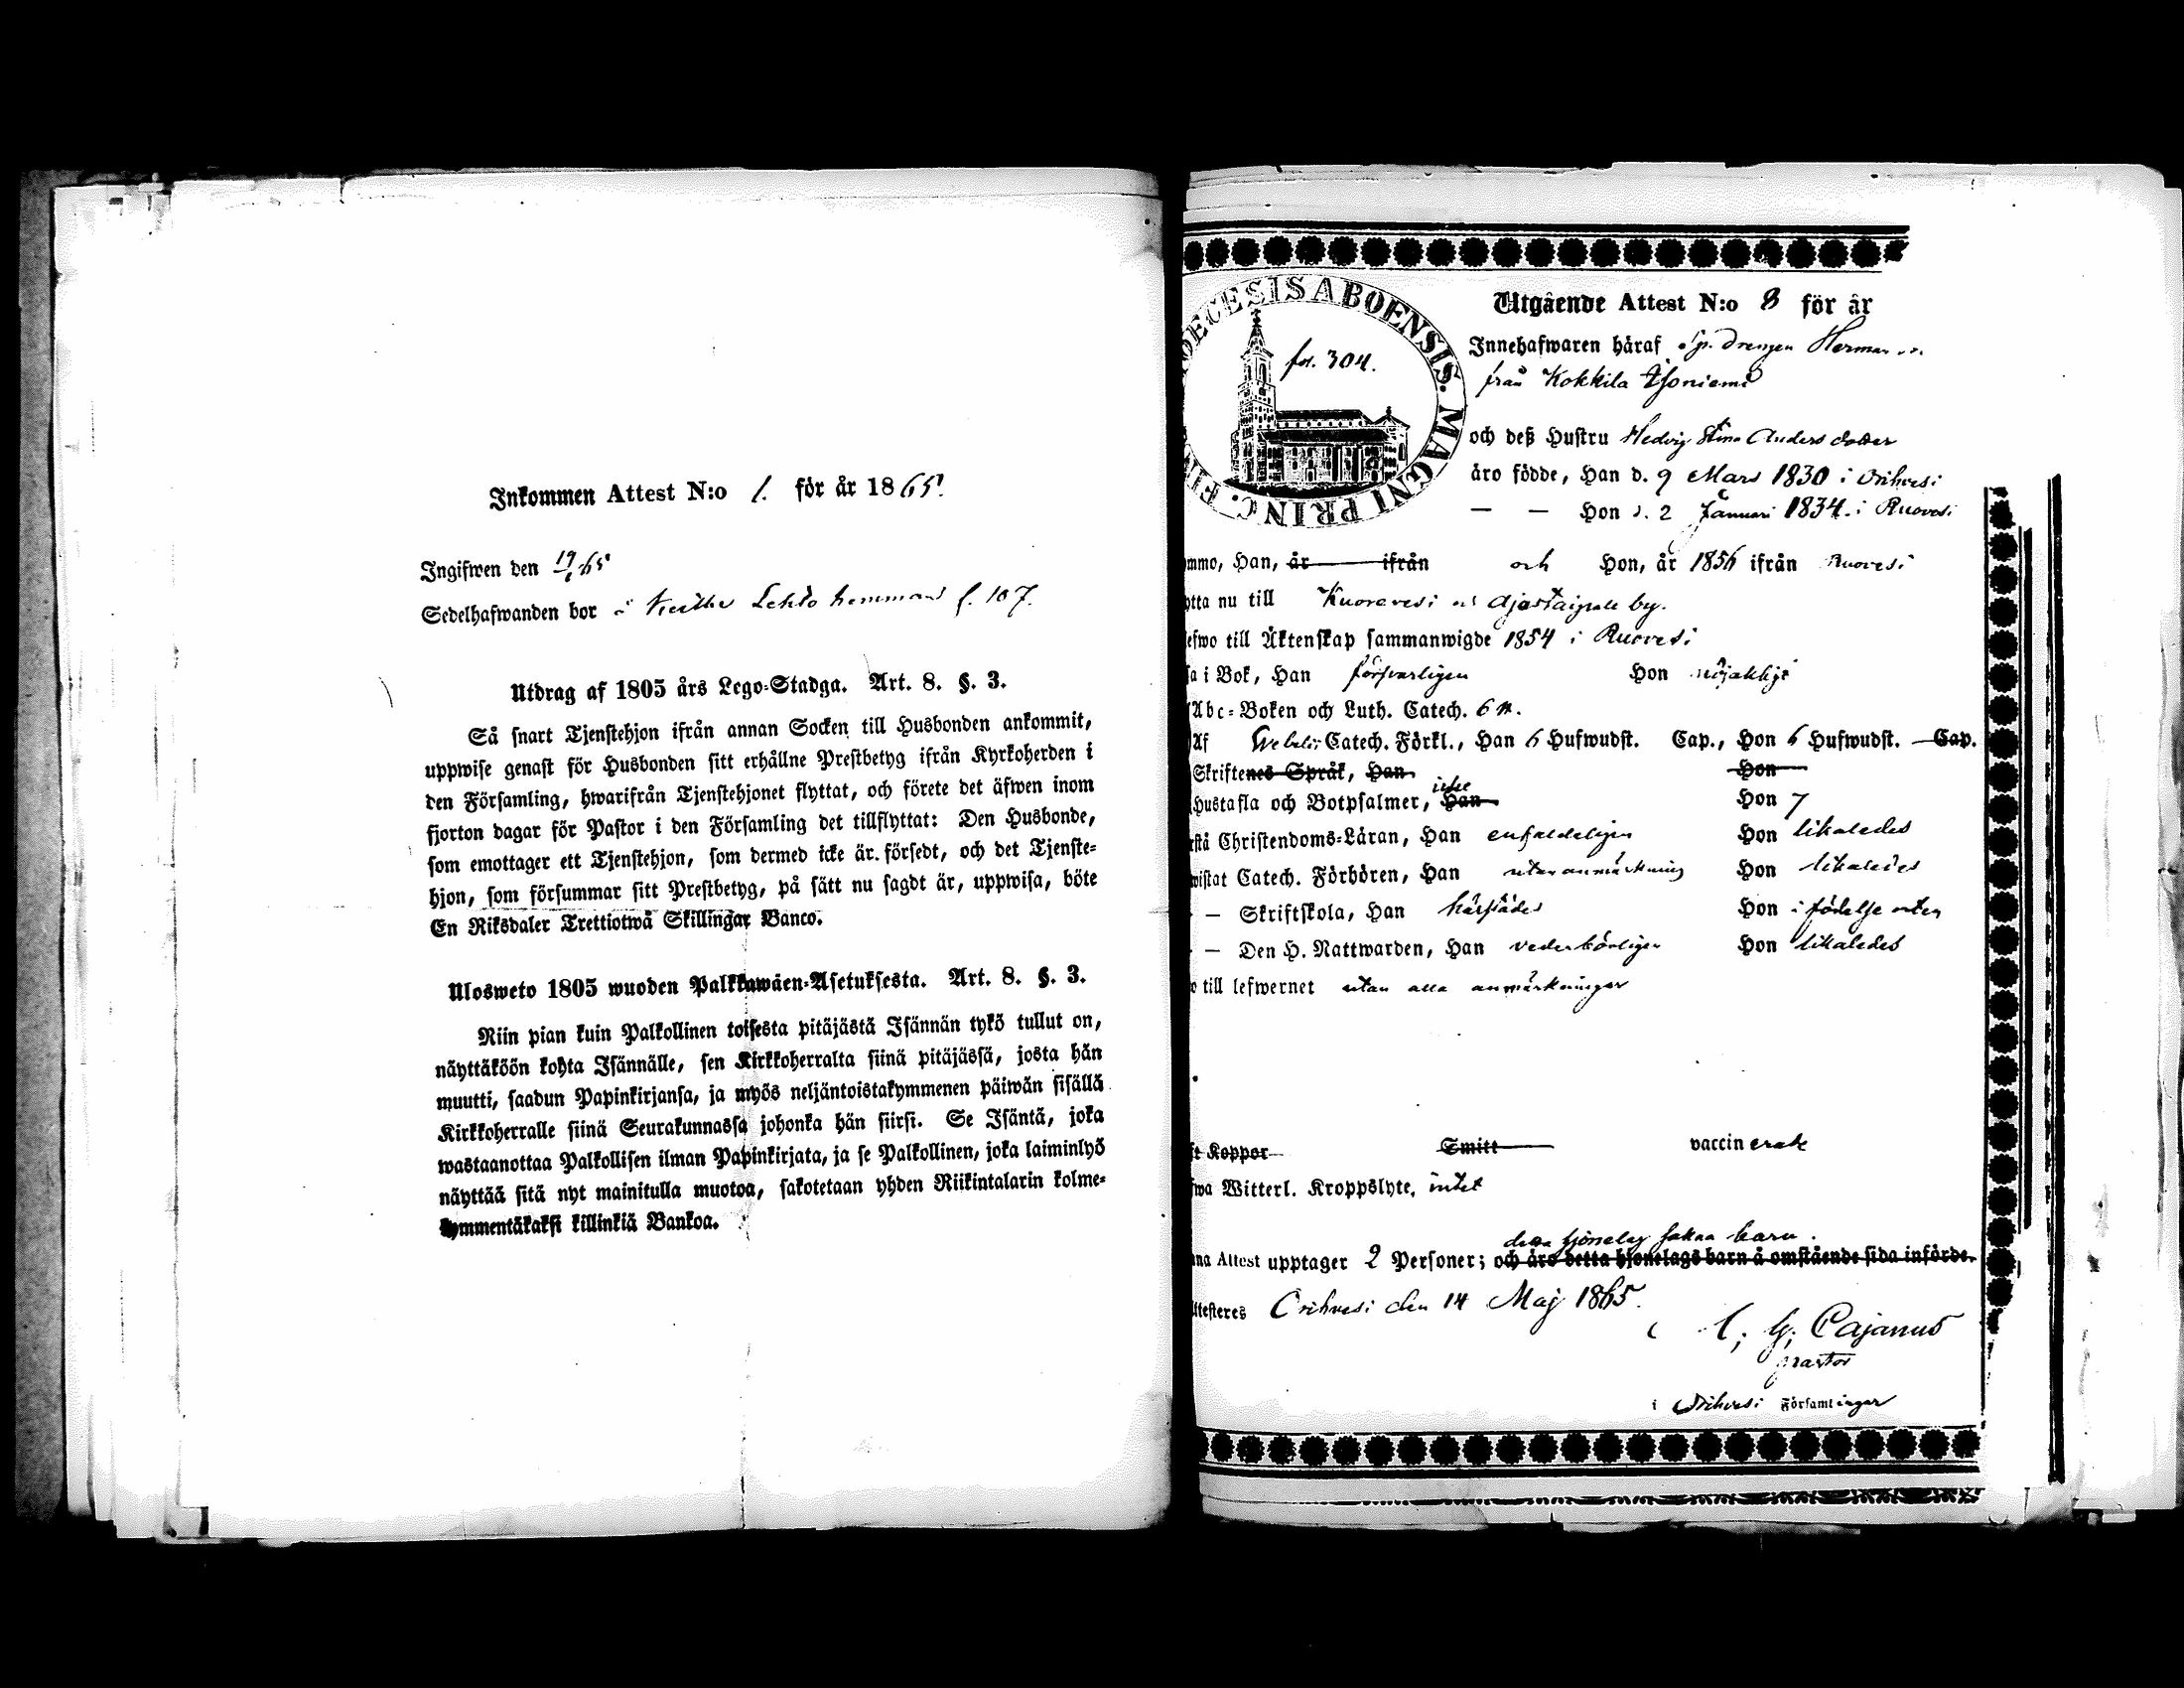 Inkommen Attest N:o 1. för år 1865.
Ingifwen den 19/1 65
Sedelhafwanden bor å Lehto hemman f. 107.
Utdrag af 1805 års Lego-Stadga. Art. 8. §. 3.
Så snart Tjenstehjon ifrån annan Socken till Husbonden ankommit,
uppwise genast för Husbonden sitt erhållne Prestbetyg ifrån Kyrkoherden i
den Församling, hwarifrån Tjenstehjonet flyttat, och förete det äfwen inom
fjorton dagar för Pastor i den Församling det tillflyttat: Den Husbonde,
som emottager ett Tjenstehjon, som dermed icke är försedt, och det Tjenste-
hjon, som försummar sitt Prestbetyg, på sätt nu sagdt är, uppwisa, böte
En Riksdaler Trettiotwå Skillingar Banco.
Ulosweto 1805 wuoden Palkkawäen-Asetuksesta. Art. 8. §. 3.
Niin pian kuin Palkollinen toisesta pitäjästä Isännän tykö tullut on,
näyttäköön kohta Isännälle, sen Kirkkoherralta siinä pitäjässä, josta hän
muutti, saadun Papinkirjansa, ja myös neljäntoistakymmenen päiwän sisällä
Kirkkoherralle siinä Seurakunnassa johonka hän siirsi. Se Isäntä, joka
wastaanottaa Palkollisen ilman Papinkirjata, ja se Palkollinen, joka laiminlyö
näyttää sitä nyt mainitulla muotoa, sakotetaan yhden Riikintalarin kolme-
kymmentäkaksi killinkiä Bankoa.
DIOECESIS ABOENSIS. MAGNI PRINC. FIN
fol. 304.
Utgående Attest N:o 8 för år
Innehafwaren häraf Sp. drengen Herman
från Kokkila
och deß Hustru Hedvig Stina Andersdotter
äro födde, Han d. 9 Mars 1830 i Orihvesi
— — Hon d. 2 Januari 1834. i Ruovesi
ommo, Han, år ifrån och Hon, år 1856 ifrån Ruovesi
ytta nu till Kuorevesi och Ajostaipale by.
efwo till Äktenskap sammanwigde 1854 i Ruovesi
sa i Bok, Han försvarligen Hon nöjaktigt
Abc-Boken och Luth. Catech. 6 st.
Af Webelii Catech. Förkl., Han 6 Hufwudst. Cap., Hon 6 Hufwudst. Cap.
Skriftenes Språk, Han Hon
Hustafla och Botpsalmer, Han icke Hon 7
rstå Christendoms-Läran, Han enfaldeligen Hon likaledes
wistat Catech. Förhören, Han utan anmärkning Hon likaledes
— — Skriftskola, Han härstädes Hon i födelse orten
— — Den H. Nattwarden, Han vederbörligen Hon likaledes
o till lefwernet utan alla anmärkningar
ft Koppor Smitt vaccinerade
fwa Witterl. Kroppslyte, intet
detta hjonelag sakna barn.
nna Attest upptager 2 Personer; och äro detta hjonelags barn å omstående sida införde.
ttesteres Orihvesi den 14 Maj 1865.
C. G. Cajanus
pastor
i Orihvesi Församlingar